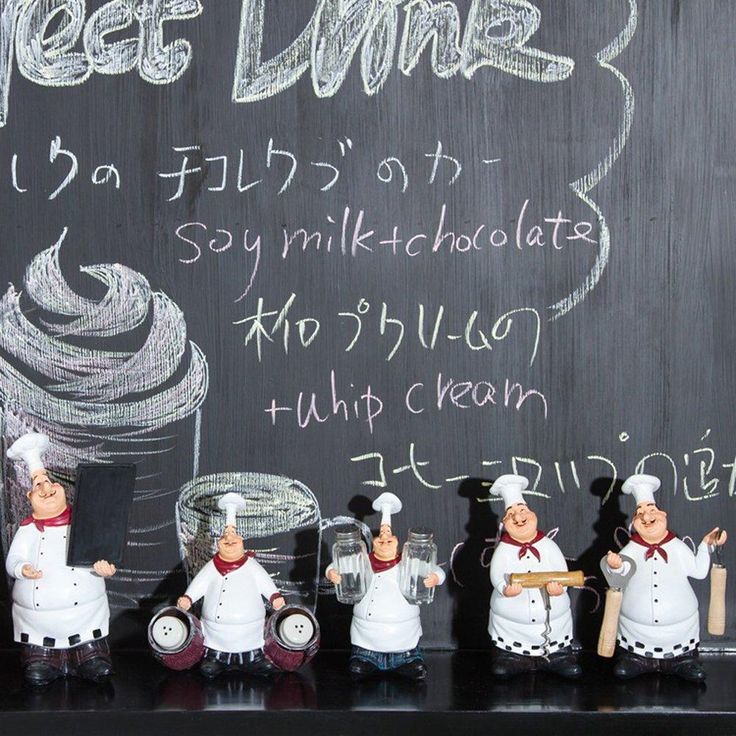 ect Drink
ルクの チコレクブのカー
soy milk+chocolate
ホイロプクリームの
+whip cream
コーヒーニロハプの追